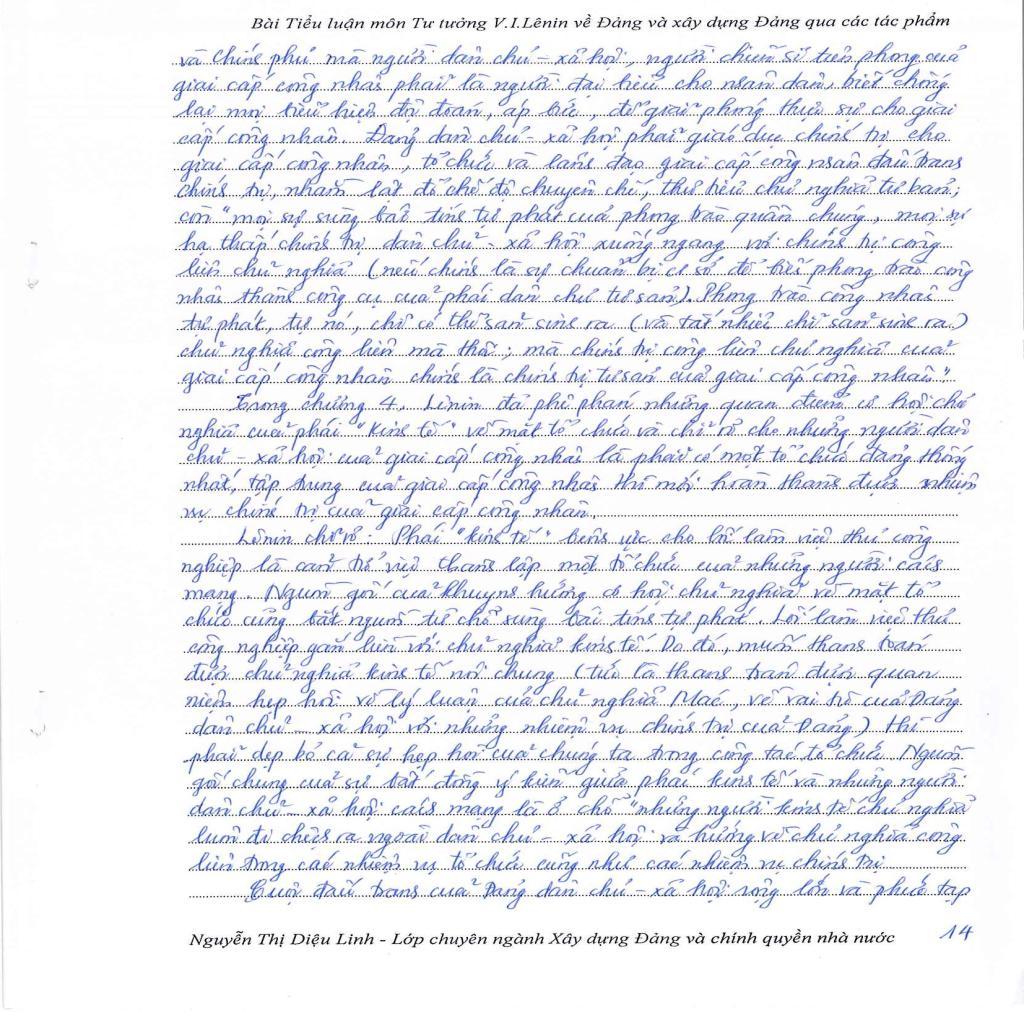 Bài Tiểu luận môn Tư tưởng V.I.Lênin về Đảng và xây dựng Đảng qua các tác phẩm
và chính phủ mà người dân chủ - xã hội, người chiến sĩ tiên phong của
giai cấp công nhân phải là người đại biểu cho nhân dân, biết chống
lại mọi biểu hiện độc đoán, áp bức, để giải phóng thực sự cho giai
cấp công nhân. Đảng dân chủ - xã hội phải giáo dục chính trị cho
giai cấp công nhân, tổ chức và lãnh đạo giai cấp công nhân đấu tranh
chính trị, nhằm lật đổ chế độ chuyên chế, thủ tiêu chủ nghĩa tư bản;
còn "mọi sự sùng bái tính tự phát của phong trào quần chúng, mọi sự
hạ thấp chính trị dân chủ - xã hội xuống ngang với chính trị công
liên chủ nghĩa (nếu chính là sự chuẩn bị cơ sở để biến phong trào công
nhân thành công cụ của phái dân chủ tư sản). Phong trào công nhân
tự phát, tự nó, chỉ có thể sản sinh ra (và tất nhiên chỉ sản sinh ra)
chủ nghĩa công liên mà thôi; mà chính trị công liên chủ nghĩa của
giai cấp công nhân chính là chính trị tư sản của giai cấp công nhân".
Trong chương 4, Lênin đã phê phán những quan điểm cơ hội chủ
nghĩa của phái "kinh tế" về mặt tổ chức và chỉ rõ cho những người dân
chủ - xã hội của giai cấp công nhân là phải có một tổ chức đảng thống
nhất, tập trung của giai cấp công nhân thì mới hoàn thành được nhiệm
vụ chính trị của giai cấp công nhân.
Lênin chỉ rõ: Phái "kinh tế" bênh vực cho lối làm việc thủ công
nghiệp là cản trở việc thành lập một tổ chức của những người cách
mạng. Nguồn gốc của khuynh hướng cơ hội chủ nghĩa về mặt tổ
chức cũng bắt nguồn từ chỗ sùng bái tính tự phát. Lối làm việc thủ
công nghiệp gắn liền với chủ nghĩa kinh tế. Do đó, muốn thanh toán
được chủ nghĩa kinh tế nói chung (tức là thanh toán được quan
niệm hẹp hòi về lý luận của chủ nghĩa Mác, về vai trò của Đảng
dân chủ - xã hội với những nhiệm vụ chính trị của Đảng) thì
phải dẹp bỏ cả sự hẹp hòi của chúng ta trong công tác tổ chức. Nguồn
gốc chung của sự bất đồng ý kiến giữa phái kinh tế và những người
dân chủ - xã hội cách mạng là ở chỗ "những người kinh tế chủ nghĩa
luôn đi chệch ra ngoài dân chủ - xã hội và hướng về chủ nghĩa công
liên trong các nhiệm vụ tổ chức cũng như các nhiệm vụ chính trị.
Cuộc đấu tranh của Đảng dân chủ - xã hội rộng lớn và phức tạp
Nguyễn Thị Diệu Linh - Lớp chuyên ngành Xây dựng Đảng và chính quyền nhà nước
14